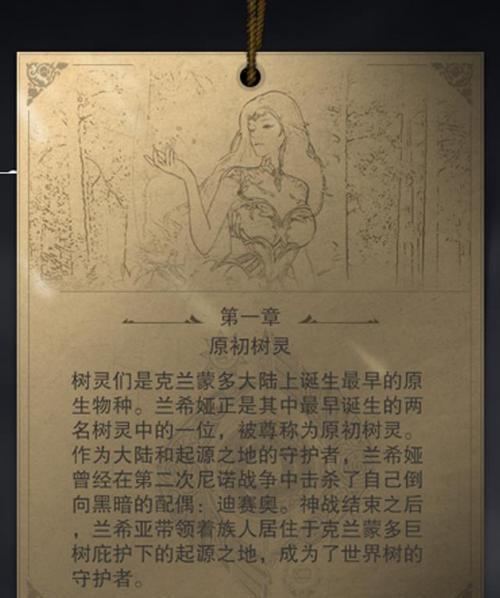 第一章
原初树灵
树灵们是克兰蒙多大陆上诞生最早的原
生物种。兰希娅正是其中最早诞生的两
名树灵中的一位，被尊称为原初树灵。
作为大陆和起源之地的守护者，兰希娅
曾经在第二次尼诺战争中击杀了自己倒
向黑暗的配偶：迪赛奥。神战结束之后
，兰希亚带领着族人居住于克兰蒙多巨
树庇护下的起源之地，成为了世界树的
守护者。